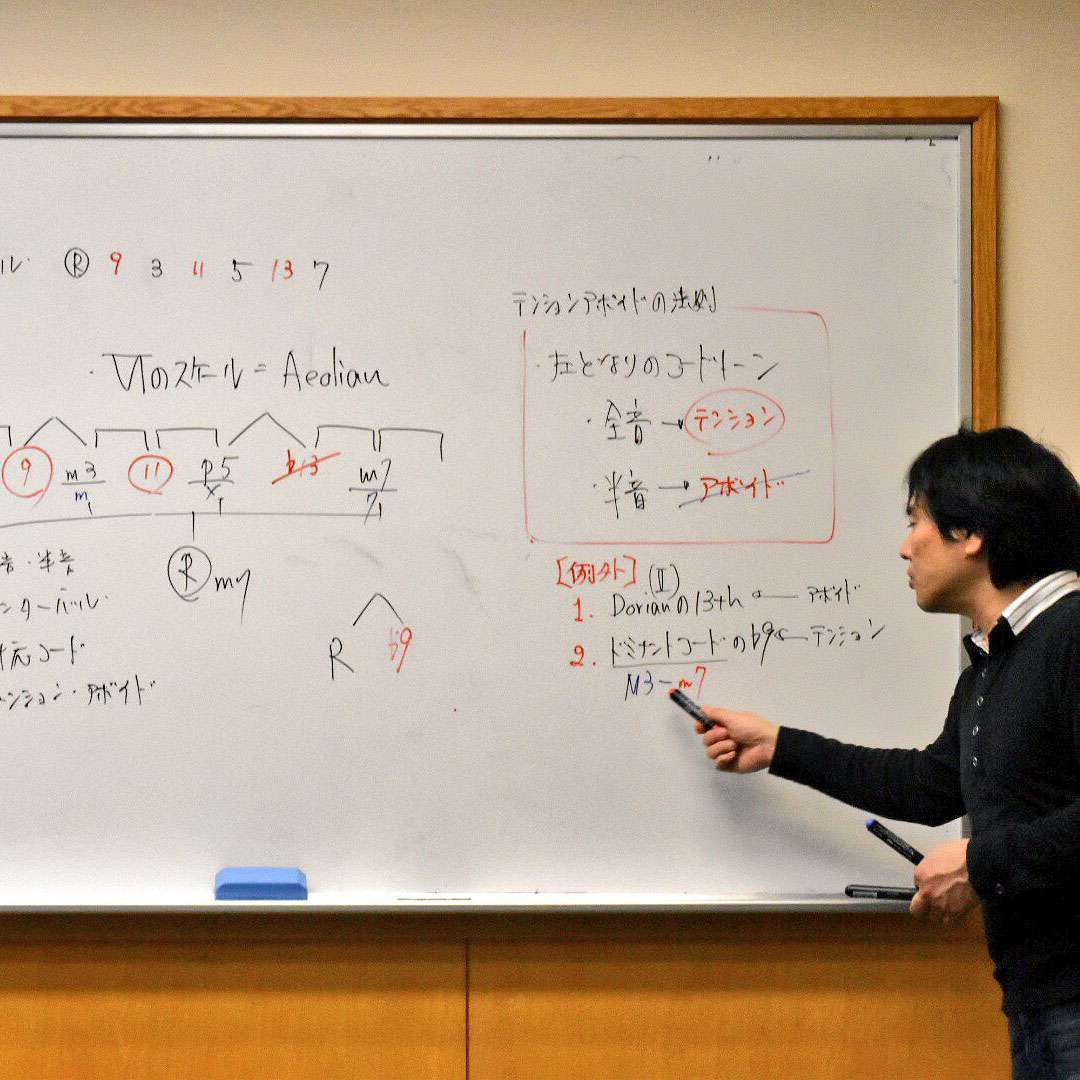 ル Ⓡ 9 3 11 5 13 7
・Ⅵのスケール = Aeolian
9 m3 11 P5 b13 m7
m 7
Ⓡm7
音・半音
ンターバル
コード
テンション・アボイド
R b9
テンションアボイドの法則
・左となりのコードトーン
・全音→テンション
・半音→アボイド
[例外] (Ⅱ)
1. Dorianの13th ← アボイド
2. ドミナントコードのb9 ← テンション
M3-m7